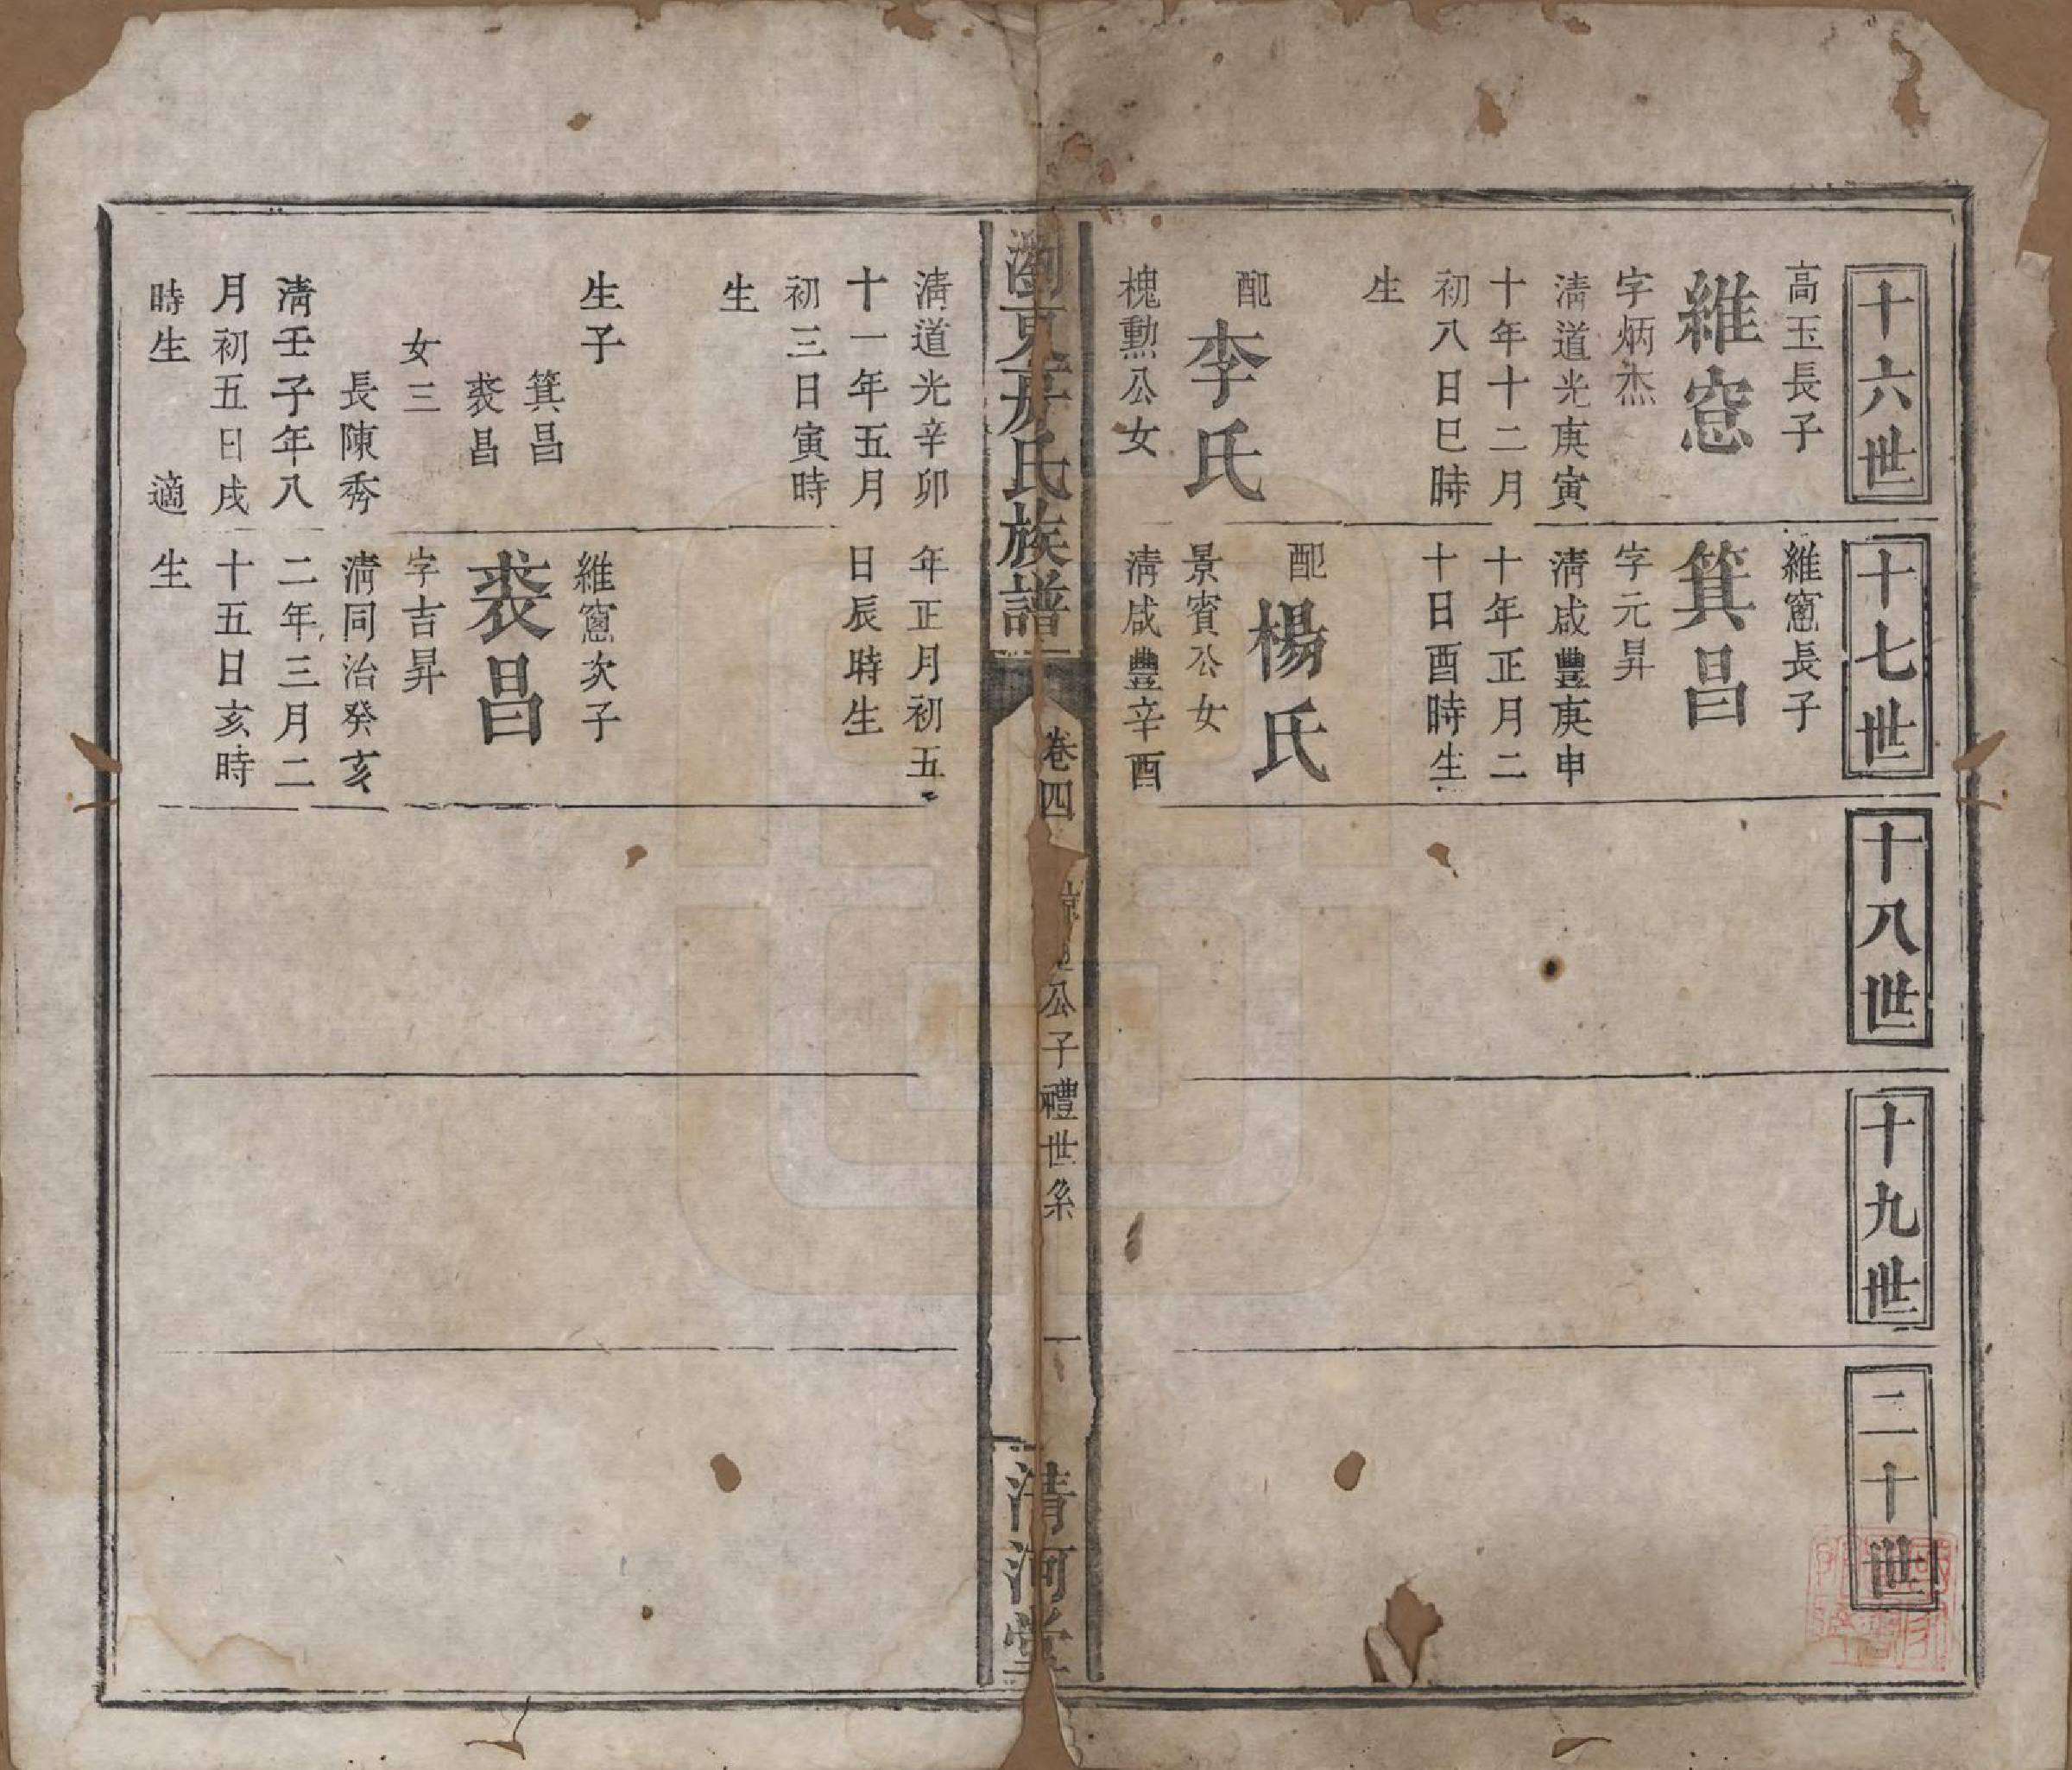 十六世
高玉長子
維窓
字炳杰
清道光庚寅
十年十二月
初八日巳時
生
配
李氏
槐勲公女
十七世
維窻長子
箕昌
字元昇
清咸豐庚申
十年正月二
十日酉時生
配
楊氏
景賓公女
清咸豐辛酉
十八世
十九世
二十世
氏族譜
卷四
公子禮世系
一
清河堂
清道光辛卯
十一年五月
初三日寅時
生
生子
箕昌
裘昌
女三
長陳秀
清壬子年八
月初五日戌
時生
適
年正月初五
日辰時生
維窻次子
裘昌
字吉昇
清同治癸亥
二年三月二
十五日亥時
生